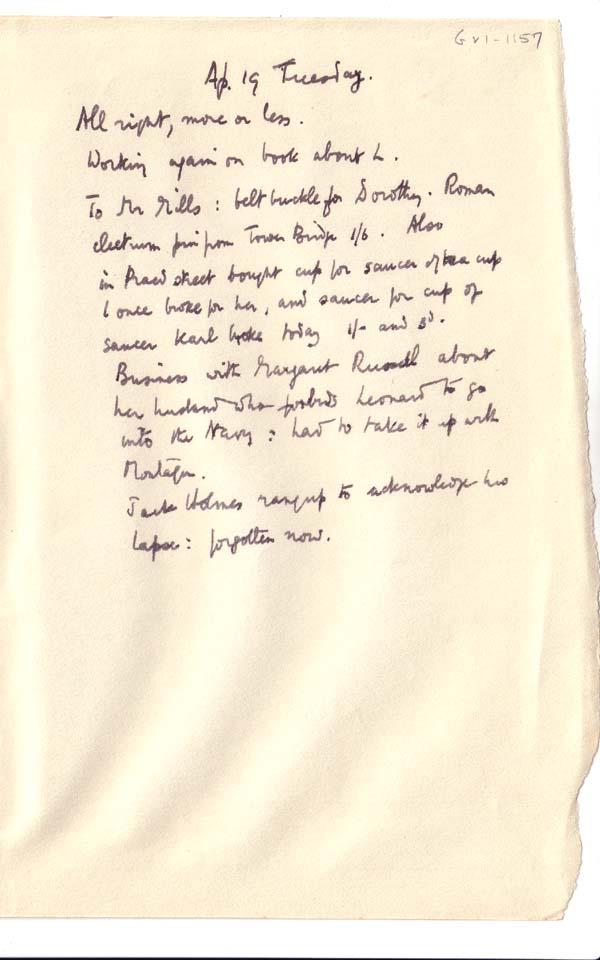 G VI-1157
Ap. 19 Tuesday.
All right, more or less.
Working again on book about L.
To Mr Mills : belt buckle for Dorothy. Roman
electrum pin from Tower Bridge 1/6. Also
in Praed street bought cup for saucer of tea cup
I once broke for her, and saucer for cup of
saucer Karl broke today 1/- and 3d.
Business with Margaret Russell about
her husband who forbids Leonard to go
into the Navy : had to take it up with
Montagu.
Jack Holmes rang up to acknowledge his
lapse : forgotten now.